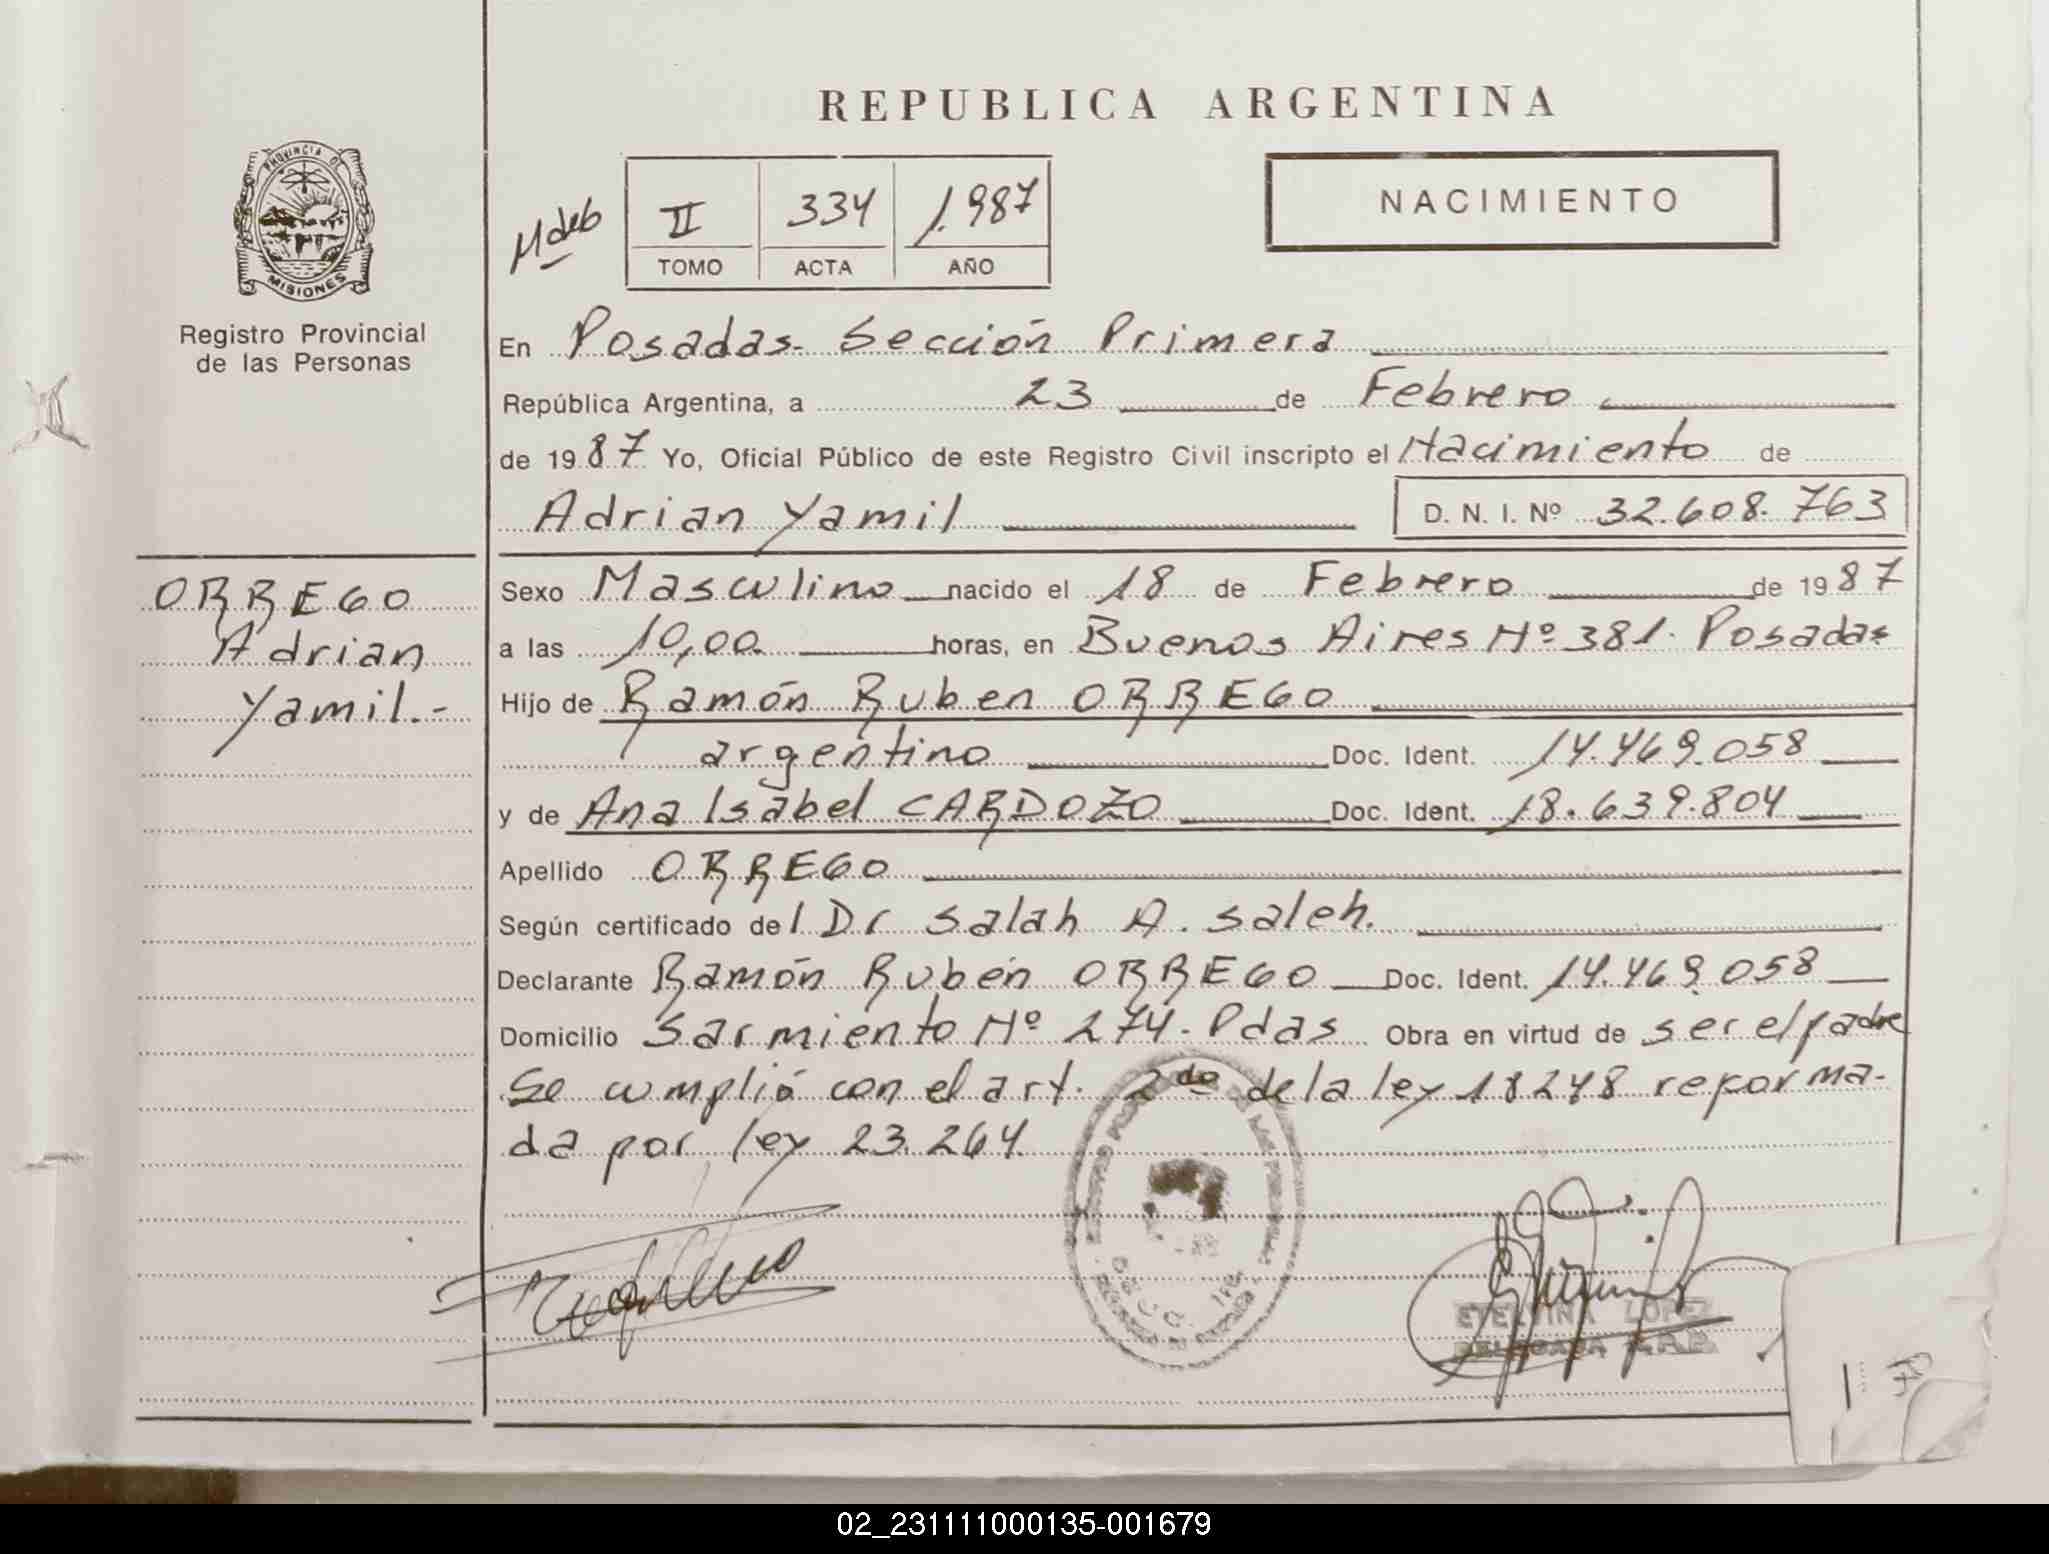 REPUBLICA ARGENTINA
PROVINCIA DE
MISIONES
Registro Provincial
de las Personas
II 334 1.987
TOMO ACTA AÑO
NACIMIENTO
En Posadas. Sección Primera
República Argentina, a 23 de Febrero
de 1987 Yo, Oficial Público de este Registro Civil inscripto el Nacimiento de
Adrian Yamil D. N. I. Nº 32.608.763
ORREGO
Adrian
Yamil.-
Sexo Masculino nacido el 18 de Febrero de 1987
a las 10,00 horas, en Buenos Aires Nº 381. Posadas
Hijo de Ramón Ruben ORREGO
argentino Doc. Ident. 14.469.058
y de Ana Isabel CARDOZO Doc. Ident. 18.639.804
Apellido ORREGO
Según certificado del Dr Salah A. Saleh.
Declarante Ramón Rubén ORREGO Doc. Ident. 14.469.058
Domicilio Sarmiento Nº 274. Pdas Obra en virtud de ser el padre
Se cumplió con el art. 2do de la ley 18248 reforma-
da por ley 23.264.
ETELVINA LOPEZ
DELEGADA R.P.P.
02_231111000135-001679